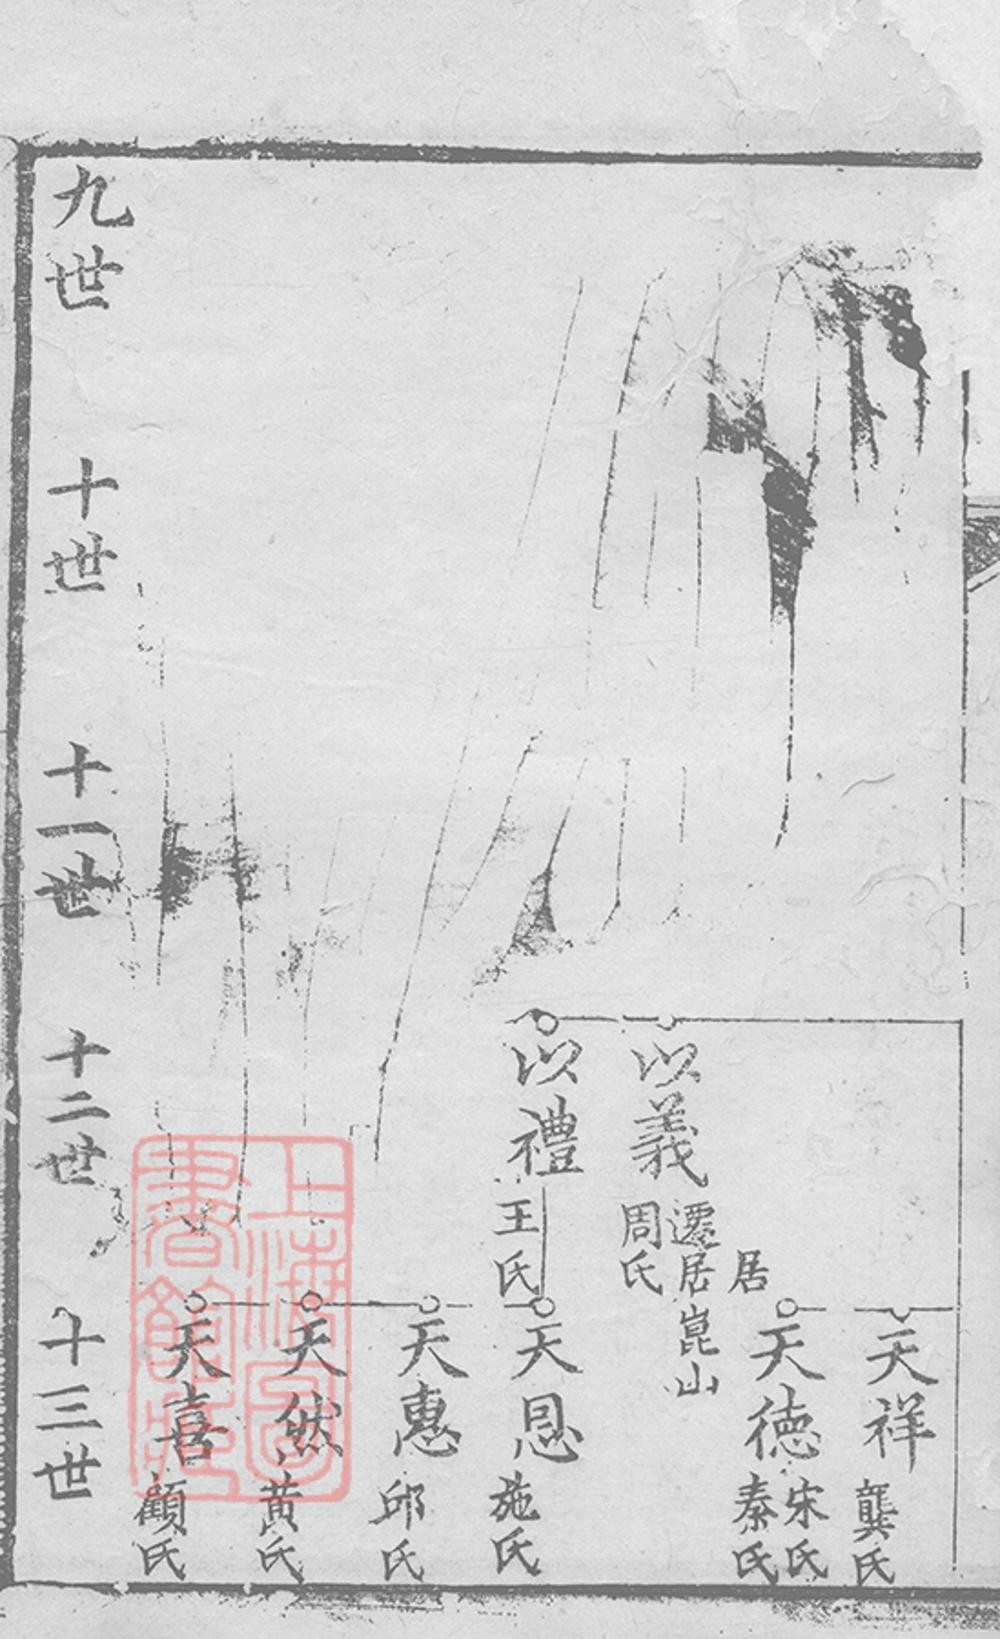 天祥 龔氏
天德 宋氏 秦氏
居
以義 遷居崑山 周氏
以禮 王氏
天恩 施氏
天惠 邱氏
天然 黃氏
天喜 顧氏
九世
十世
十一世
十二世
十三世
上海圖書館藏